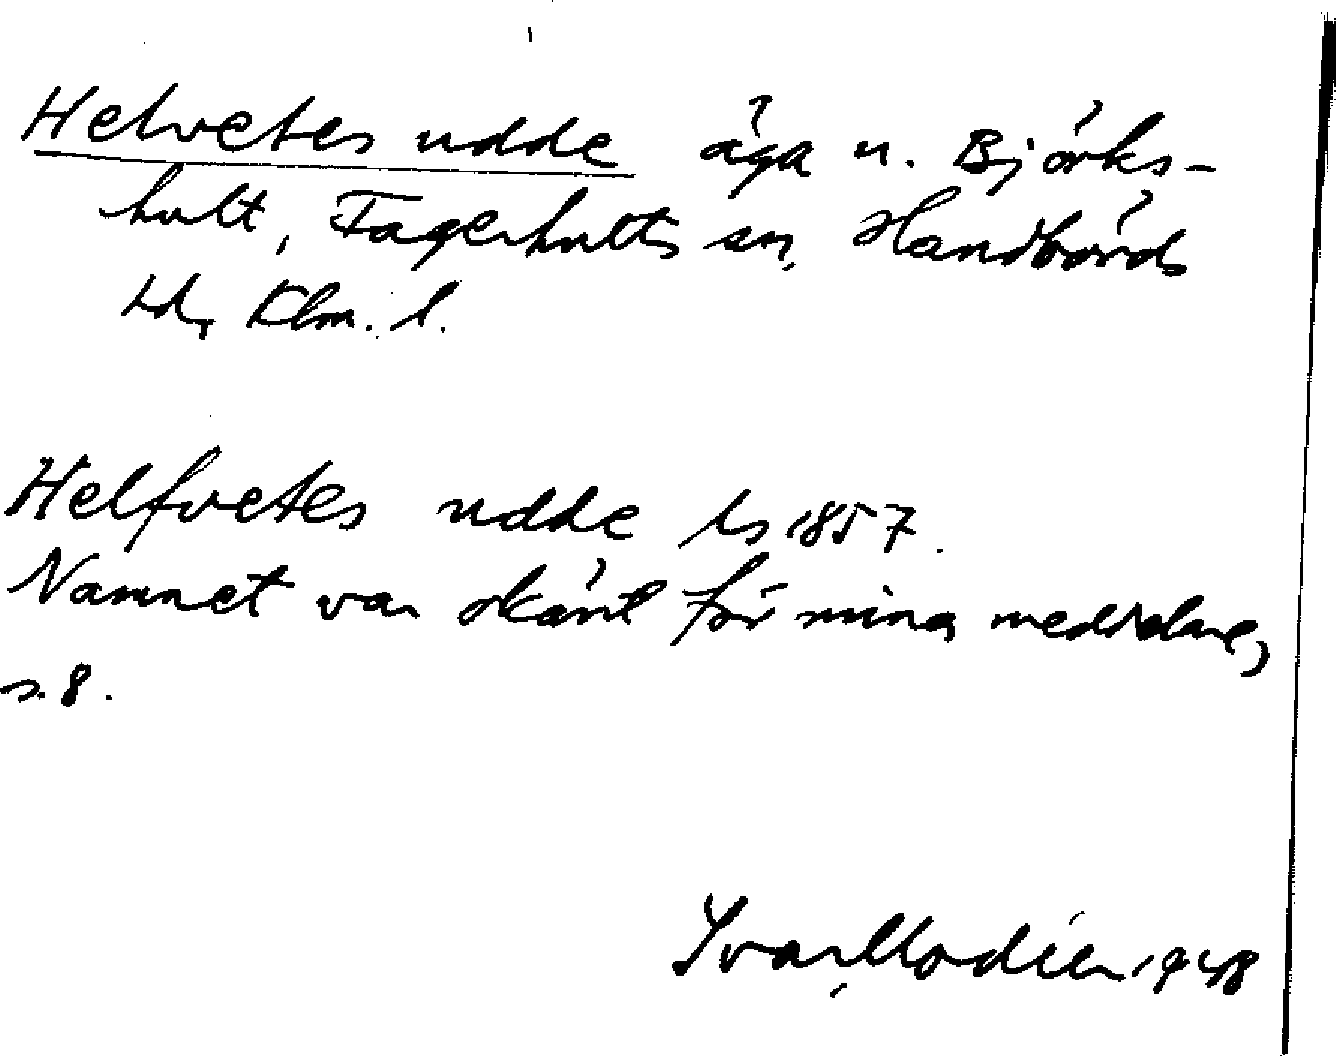 Helvetes udde äga u. Björks-
hult, Fagerhults sn, Handbörds
hd, Klm. l.
Helfvetes udde Ls 1857.
Namnet var okänt för mina meddelare,
s. 8.
Ivar Modéer 1948